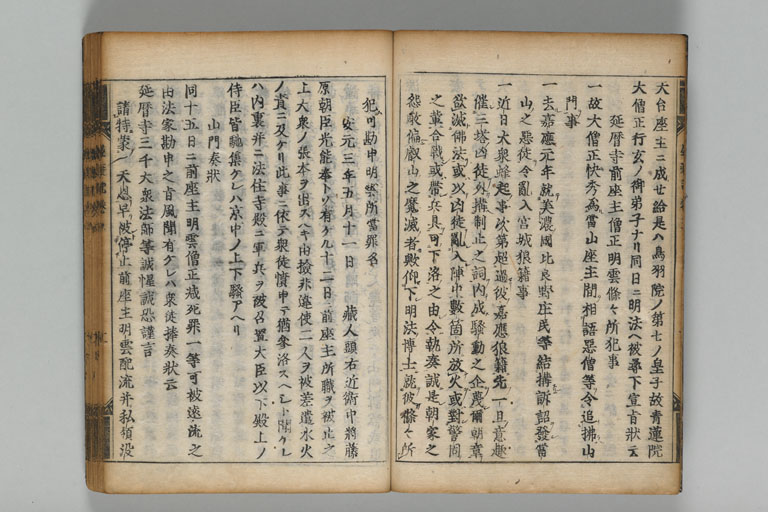 天台座主ニ成せ給是ハ鳥羽院ノ第七ノ皇子故青蓮院
大僧正行玄ノ御弟子ナリ同日ニ明法ヘ被尋下宣旨状云
延暦寺前座主僧正明雲條々所犯事
一故大僧正快秀為當山座主間相語惡僧等令追拂山
門事
一去嘉應元年就美濃國比良野庄民等結構訴詔發當
山之惡徒令亂入宮城狼籍事
一近日大衆蜂起事次第超過彼嘉應狼籍先一旦意趣
催三塔凶徒外搆制止之詞内成騒動之企蔑爾朝章
欲滅佛法或以凶徒亂入陣中數箇所放火或對警固
之輩合戰或帶兵具可下洛之由令執奏誠是朝家之
怨敵偏叡山之魔滅者歟仰下明法博士等彼條々所
犯可勘申明雲所當罪名
安元三年五月十一日 藏人頭右近衛中將藤
原朝臣光能奉トソ有ケル十二日ニ前座主所職ヲ被止之
上大衆ノ張本ヲ出スヘキ由撿非違使二人ヲ被差遣水火
ノ責ニ及ケリ此事ニ依テ衆徒憤申テ猶參洛スヘシト聞ケレ
ハ内裏并ニ法住寺殿ニ軍兵ヲ被召置大臣以下殿上ノ
侍臣皆馳集ケレハ京中ノ上下騷アヘリ
山門奏状
同十五日ニ前座主明雲僧正减死罪一等可被遠流之
由法家勘申之旨風聞有ケレハ衆徒捧奏状云
延暦寺三千大衆法師等誠惶誠恐謹言
請特蒙天恩早被停止前座主明雲配流并私領没